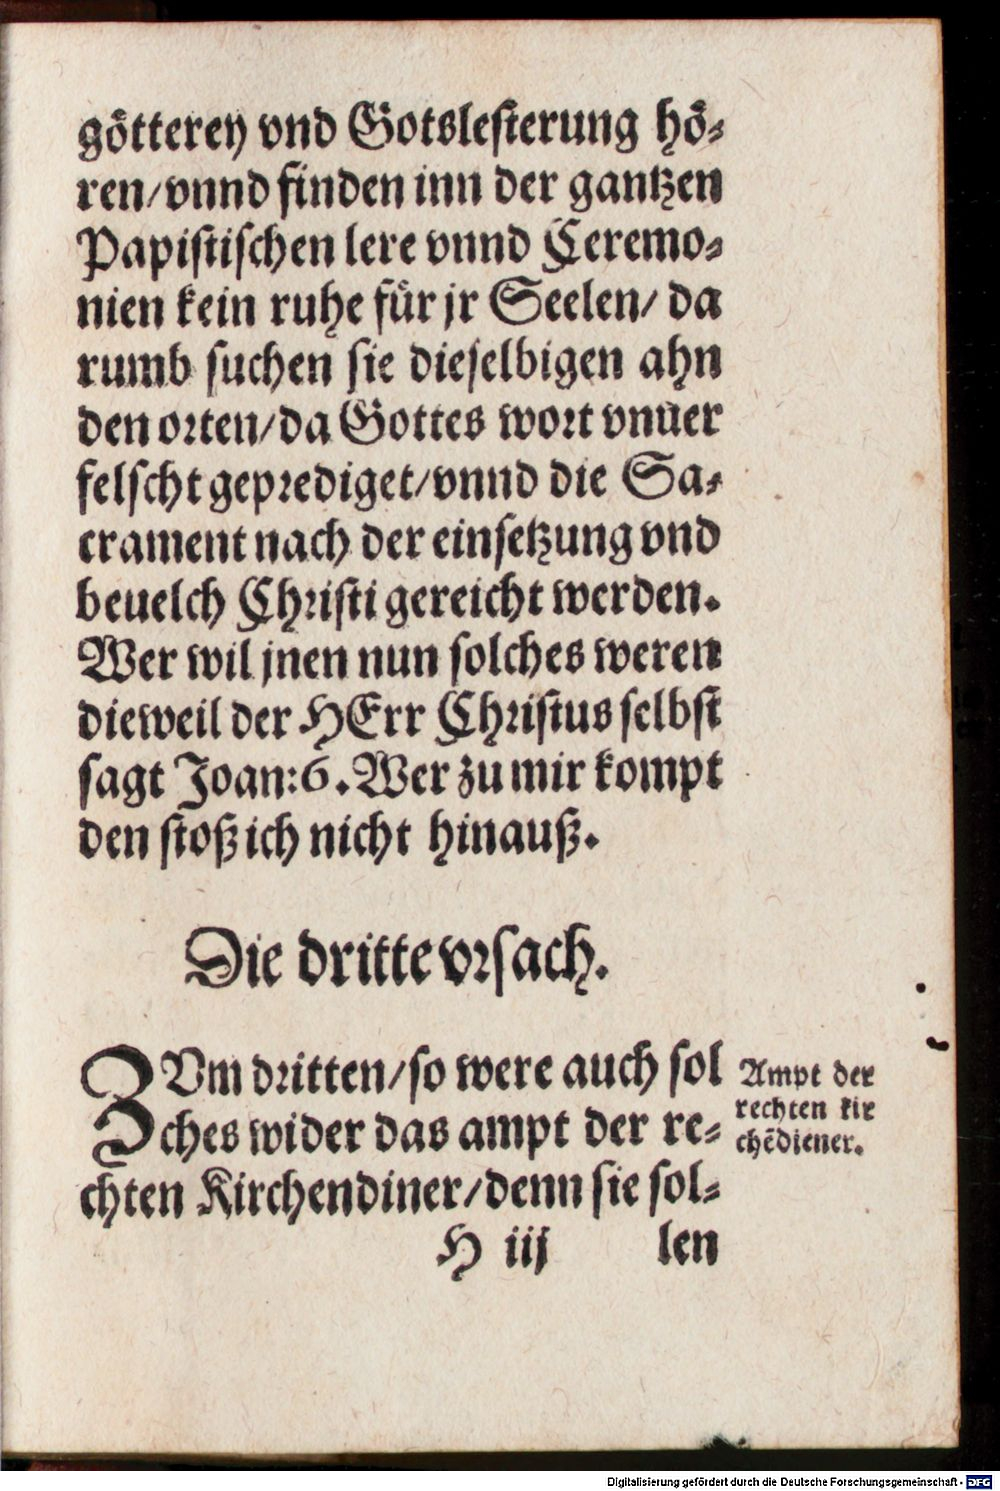 götterey vnd Gotslesterung hö-
ren/vnnd finden inn der gantzen
Papistischen lere vnnd Ceremo-
nien kein ruhe für jr Seelen/ da
rumb suchen sie dieselbigen ahn
den orten/da Gottes wort vnuer
felscht geprediget/vnnd die Sa-
crament nach der einsetzung vnd
beuelch Christi gereicht werden.
Wer wil jnen nun solches weren
dieweil der HErr Christus selbst
sagt Joan:6. Wer zu mir kompt
den stoß ich nicht hinauß.
Die dritte vrsach.
ZVm dritten/so were auch sol
ches wider das ampt der re-
chten Kirchendiner/denn sie sol-
Ampt der
rechten kir
chēdiener.
H iij len
Digitalisierung gefördert durch die Deutsche Forschungsgemeinschaft - DFG